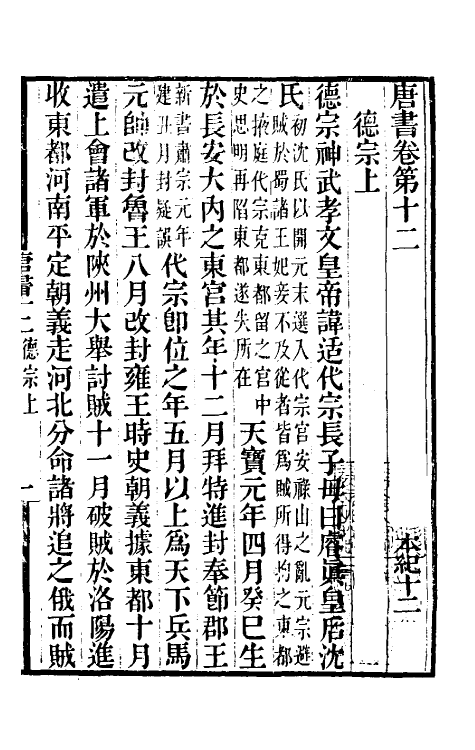 唐書卷第十二　本紀十二
德宗上
德宗神武孝文皇帝諱适代宗長子母曰睿眞皇后沈
氏初沈氏以開元末選入代宗宮安祿山之亂元宗避
賊於蜀諸王妃妾不及從者皆爲賊所得拘之東都
之掖庭代宗克東都留之宮中
史思明再陷東都遂失所在天寶元年四月癸巳生
於長安大內之東宮其年十二月拜特進封奉節郡王
新書肅宗元年
建丑月封疑誤代宗卽位之年五月以上爲天下兵馬
元帥改封魯王八月改封雍王時史朝義據東都十月
遣上會諸軍於陝州大舉討賊十一月破賊於洛陽進
收東都河南平定朝義走河北分命諸將追之俄而賊
唐書十二德宗上　一